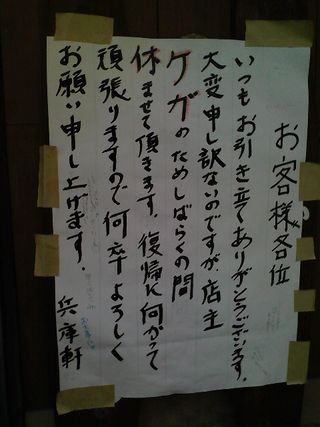 お客様各位
いつもお引き立てありがとうございます。
大変申し訳ないのですが、店主
ケガのためしばらくの間
休ませて頂きます。復帰に向かって
頑張りますので何卒よろしく
お願い申し上げます。
兵庫軒